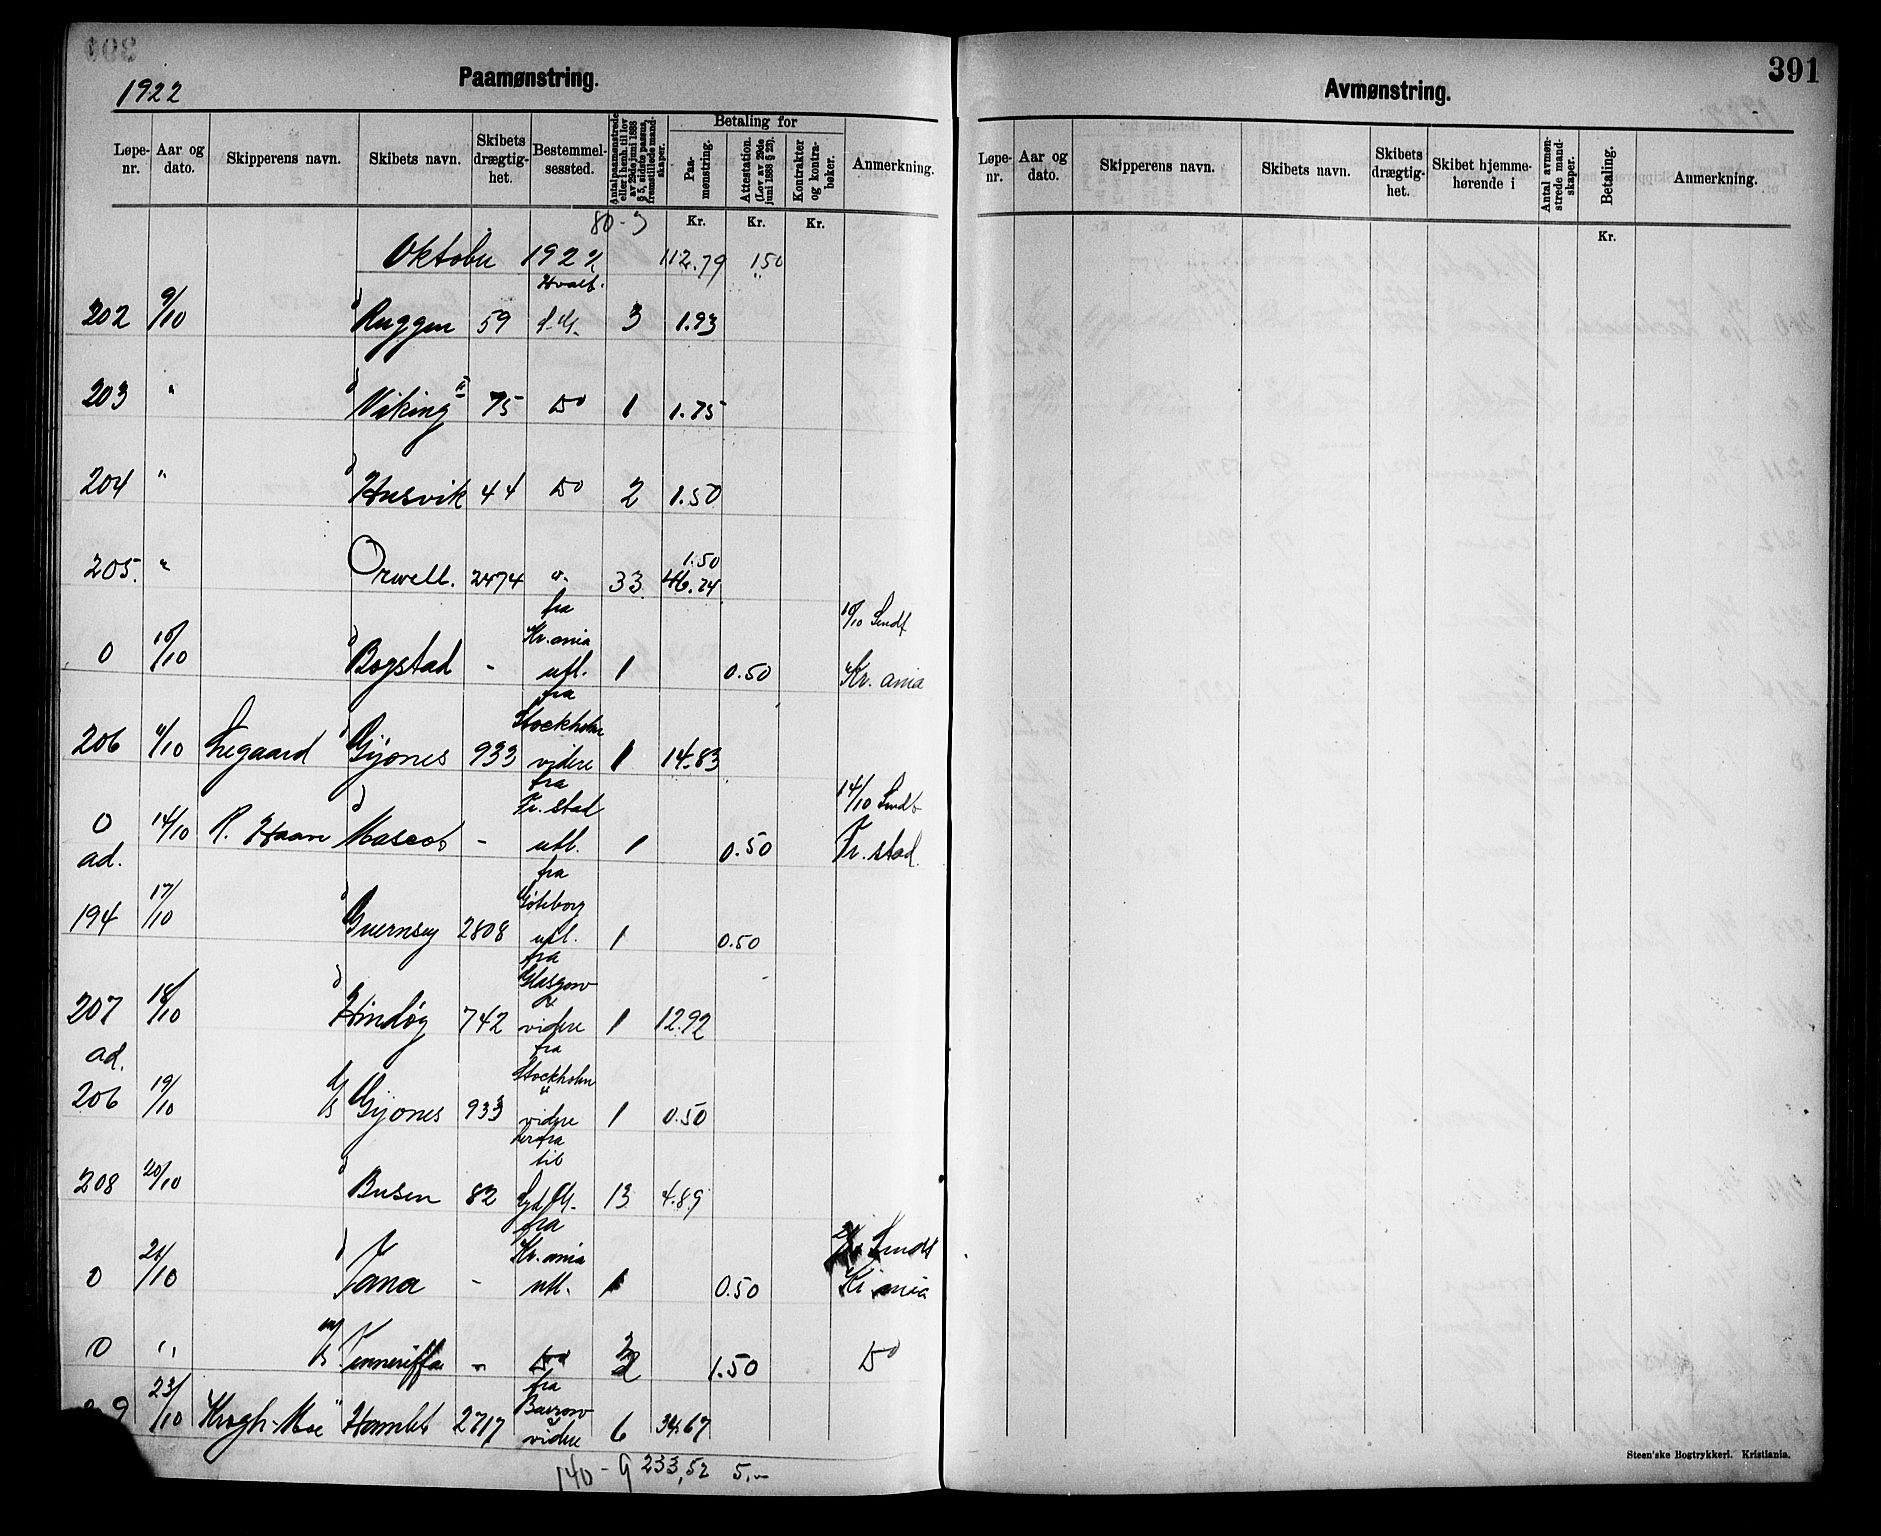 1922
Paamønstring.
Løpe-nr. Aar og dato. Skipperens navn. Skibets navn. Skibets drægtig-het. Bestemmel-sessted. Antal paamønstrede eller i henh. til lov av 29de juni 1888 § 5, sidste passus, fremstillede mand-skaper. Betaling for Paa-mønstring. Attestation. (Lov av 29de juni 1888 § 25). Kontrakter og kontra-bøker. Anmerkning.
80-3 Kr. Kr. Kr.
Oktober 1922 112.79 1.50
202 9/10 Ruggen 59 Hvalf. 3 1.93
203 " Viking II 75 Do 1 1.75
204 " Husvik 44 Do 2 1.50
205. " Orwell. 2474 33 1.50 46.24
0 10/10 Bogstad - fra Kr.ania utl. 1 0.50 10/10 Sendt Kr. ania
206 11/10 Gijones 933 fra Stockholm videre 1 14.83
0 14/10 R. Haave Mascot - fra Fr.stad utl. 1 0.50 14/10 Sendt Fr. stad
ad. 194 17/10 Guernsey 2808 fra Göteborg utl. 1 0.50
207 18/10 Hindöy 742 fra Glasgow videre 1 12.92
ad. 206 19/10 Gijones 933 fra Stockholm videre 1 0.50
208 20/10 Busen 82 herfra til 13 4.89
0 21/10 Jana - fra Kr.ania utl. 1 0.50 Sendt Kr.ania
0 " m/s Tenneriffa - Do 1.50 Do
9 23/10 Krogh-Moe Hamlet 2717 fra Barrow videre 6 34.67
140 - 9 233,52 5,-
391
Avmønstring.
Løpe-nr. Aar og dato. Skipperens navn. Skibets navn. Skibets drægtig-het. Skibet hjemme-hørende i Antal avmøn-strede mand-skaper. Betaling. Anmerkning.
Kr.
Steen'ske Bogtrykkeri. Kristiania.